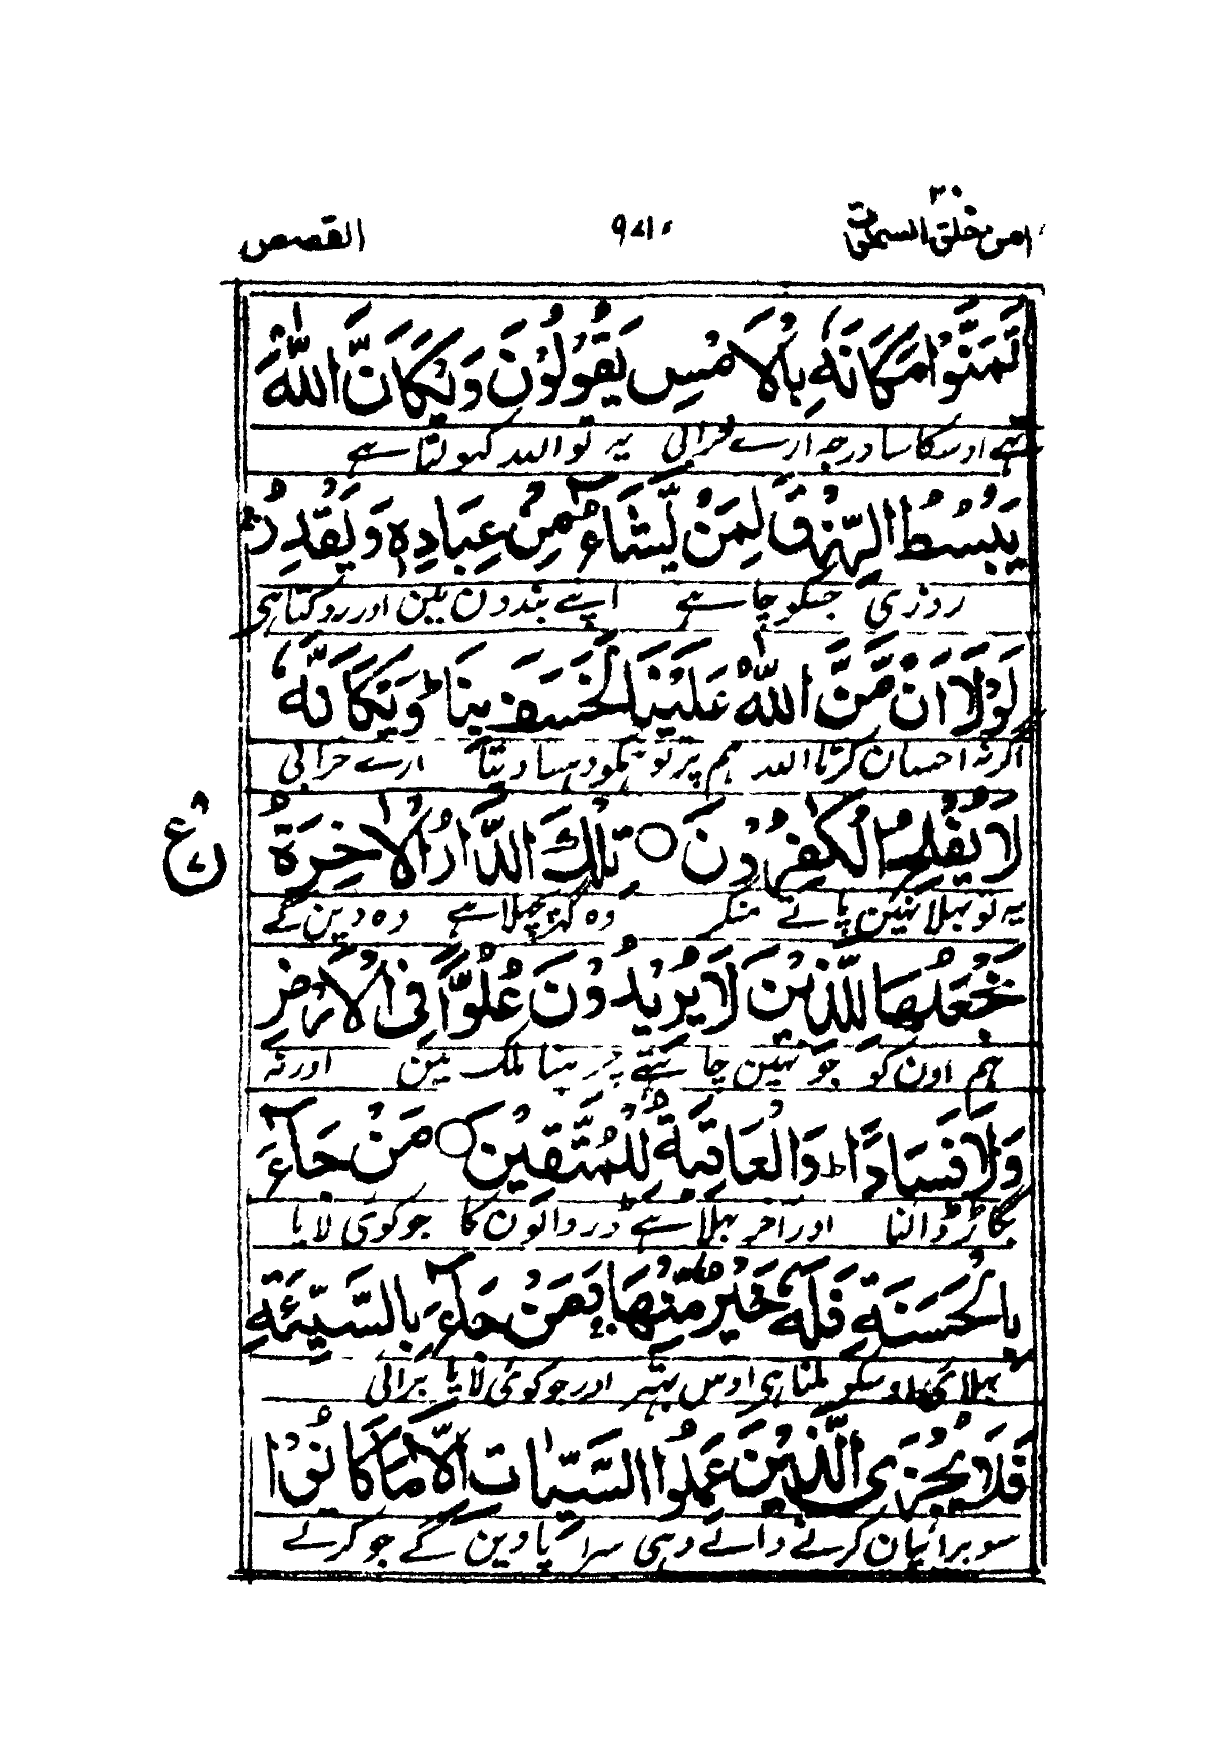 امن خلق السمٰوٰت ٢٠ القصص
تَمَنَّوْا مَكَانَهٗ بِالْاَمْسِ يَقُوْلُوْنَ وَيْكَاَنَّ اللّٰهَ
اوسکا سا درجہ ارے خرابی یہ تو اللہ کہولتا ہے
يَبْسُطُ الرِّزْقَ لِمَنْ يَّشَآءُ مِنْ عِبَادِهٖ وَيَقْدِرُ
روزی جسکو چاہے اپنے بندون مین اور روکتا ہی
لَوْلَا اَنْ مَّنَّ اللّٰهُ عَلَيْنَا لَخَسَفَ بِنَا ط وَيْكَاَنَّهٗ
اگر نہ احسان کرتا اللہ ہم پر تو ہمکو دہسا دیتا ارے خرابی
لَا يُفْلِحُ الْكٰفِرُوْنَ ○ تِلْكَ الدَّارُ الْاٰخِرَةُ
ع
یہ تو بہلا نہین پاتے منکر وہ گہر پچہلا ہے وہ دین گے
نَجْعَلُهَا لِلَّذِيْنَ لَا يُرِيْدُوْنَ عُلُوًّا فِى الْاَرْضِ
ہم اون کو جو نہین چاہتے چڑہنا ملک مین اور نہ
وَلَا فَسَادًا ط وَالْعَاقِبَةُ لِلْمُتَّقِيْنَ ○ مَنْ جَآءَ
بگاڑ ڈالنا اور آخر بہلا ہے ڈر والون کا جو کوئی لایا
بِالْحَسَنَةِ فَلَهٗ خَيْرٌ مِّنْهَا ج وَمَنْ جَآءَ بِالسَّيِّئَةِ
بہلائی اوسکو ملنا ہی اوس بہتر اور جو کوئی لایا برائی
فَلَا يُجْزَى الَّذِيْنَ عَمِلُوا السَّيِّاٰتِ اِلَّا مَا كَانُوْا
سو برائیان کرنے والے وہی سزا پاوین گے جو کرتے